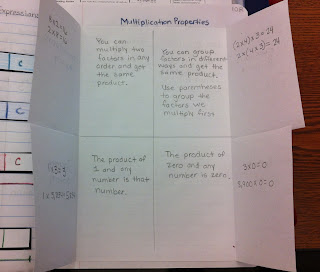 Expressions
Multiplication Properties
You can
multiply two
factors in any
order and get
the same
product.
You can group
factors in different
ways and get the
same product.
Use parentheses
to group the
factors we
multiply first
(2x4)x3=24
2x(4x3)=24
C
C
The product of
1 and any
number is that
number.
The product of
zero and any
number is zero.
9x0=0
3,900x0=0